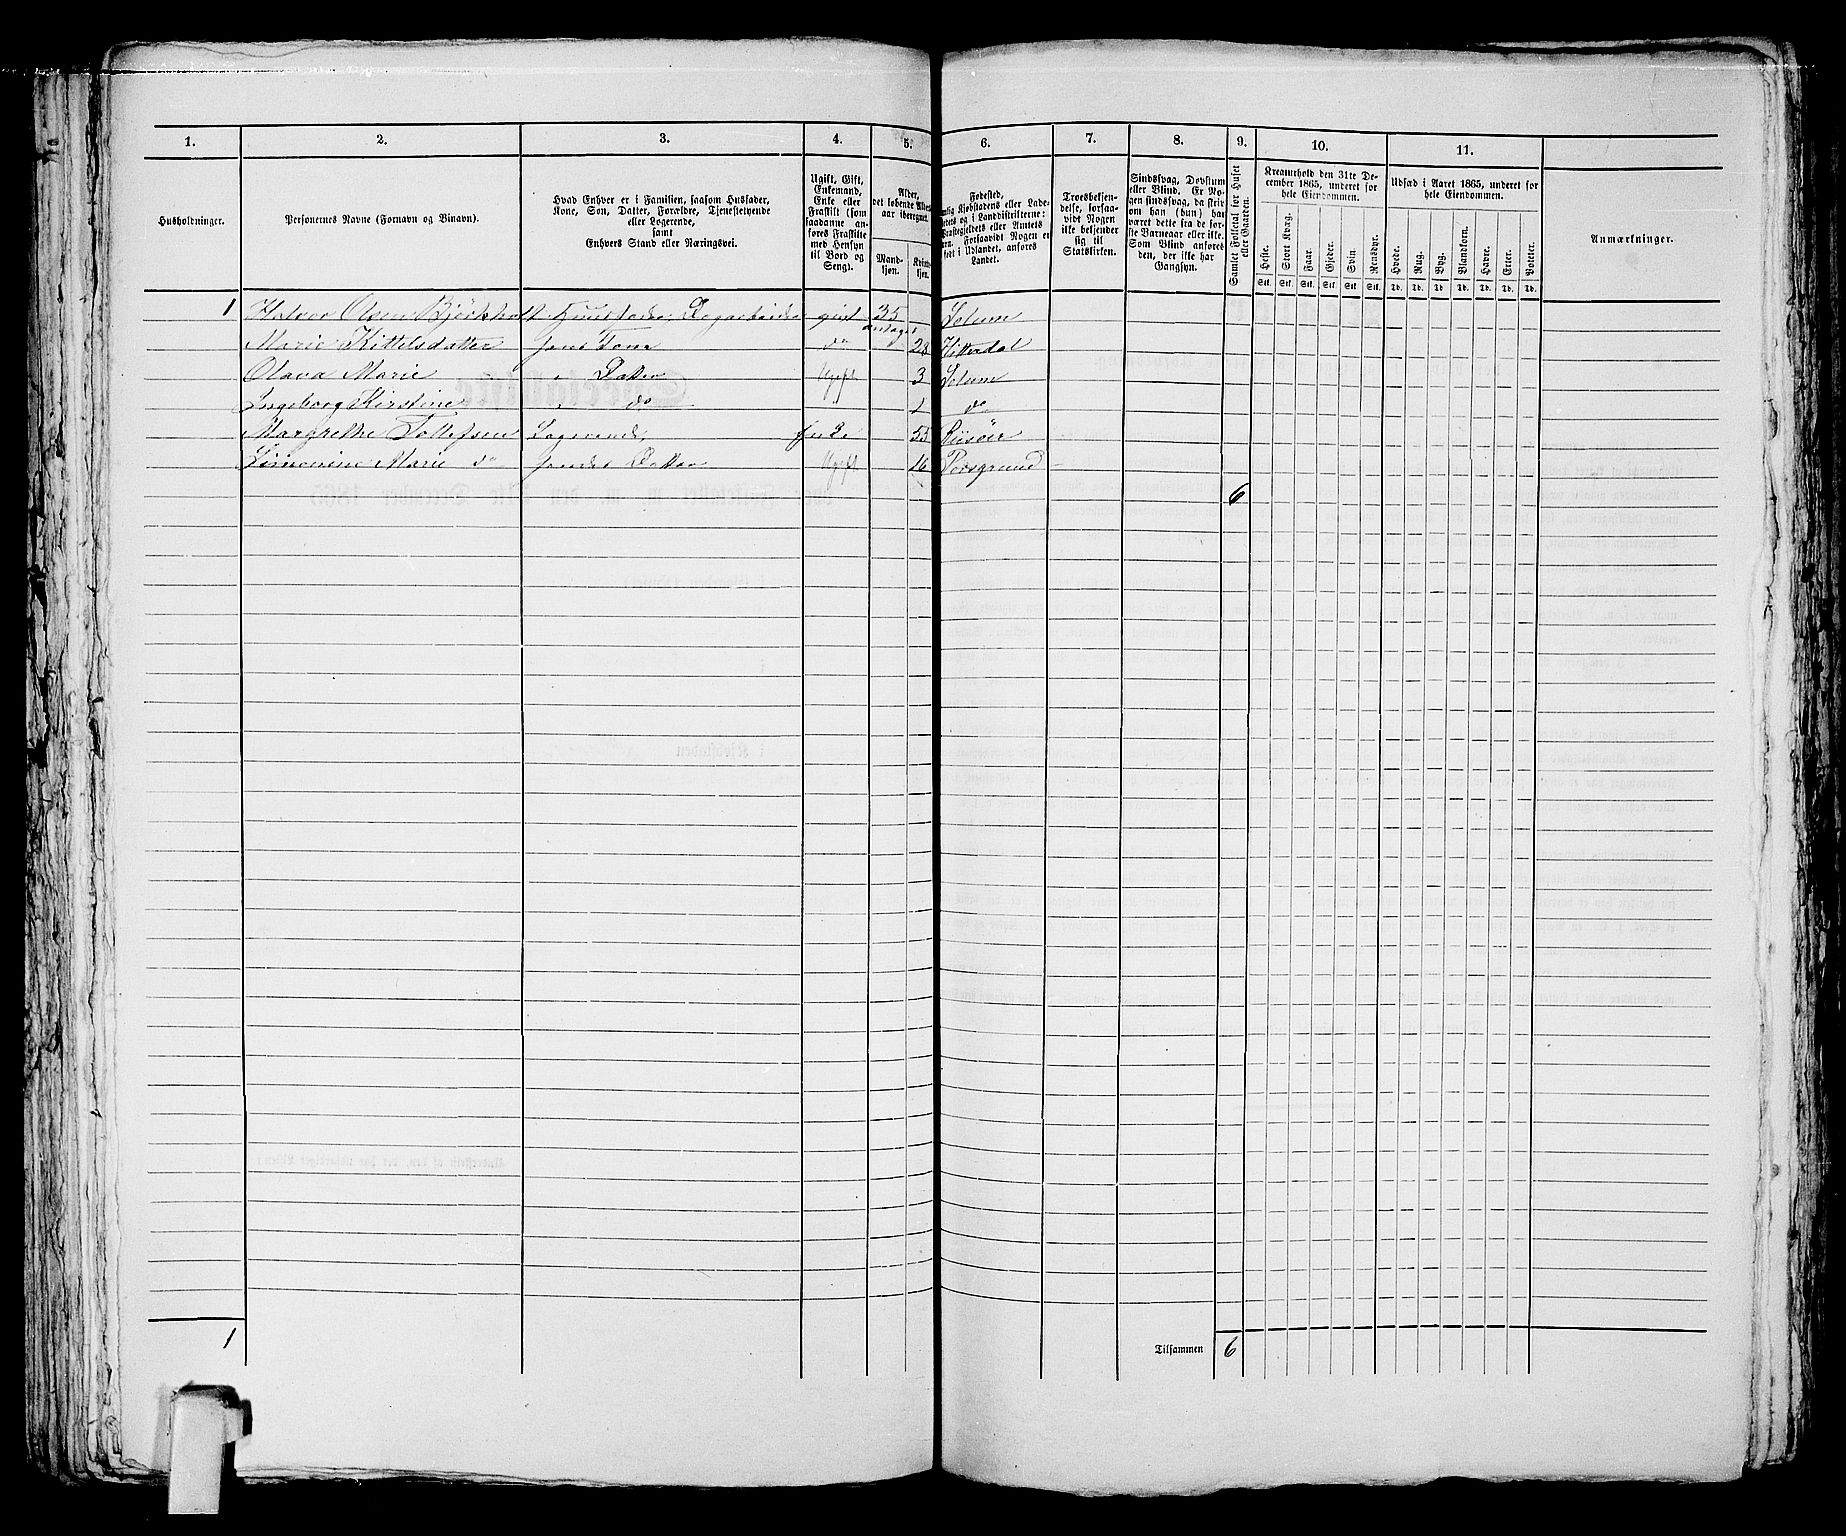 1. 2. 3. 4. 5. 6. 7. 8. 9. 10. 11.
Husholdninger.
Personernes Navne (Fornavn og Binavn).
Hvad Enhver er i Familien, saasom Husfader,
Kone, Søn, Datter, Forældre, Tjenestetyende
eller Logerende,
samt
Enhvers Stand eller Næringsvei.
Ugift, Gift,
Enkemand,
Enke eller
Fraskilt (som
saadanne an-
føres Fraskilte
med Hensyn
til Bord og
Seng).
Alder,
det løbende Alders-
aar iberegnet.
Mand-
kjøn.
Kvind-
kjøn.
Fødested,
Kjøbstadens eller Lade-
og i Landdistrikterne:
Præstegjeldets eller Amtets
Forsaavidt Nogen er
født i Udlandet, anføres
Landet.
Troesbekjen-
delse, forsaa-
vidt Nogen
ikke bekjender
sig til
Statskirken.
Sindssvag, Døvstum
eller Blind. Er No-
gen sindssvag, da skriv
om han (hun) har
været dette fra de før-
ste Barneaar eller ikke.
Som Blind anføres
den, der ikke har
Gangsyn.
Samlet Folketal for Huset
eller Gaarden.
Kreaturhold den 31te De-
cember 1865, underet for
hele Eiendommen.
Heste. Stort Kvæg. Faar. Gjeder. Svin. Rensdyr.
Stk. Stk. Stk. Stk. Stk. Stk.
Udsæd i Aaret 1865, underet for
hele Eiendommen.
Hvede. Rug. Byg. Blandkorn. Havre. Erter. Poteter.
Td. Td. Td. Td. Td. Td. Td.
Anmærkninger.
1 Halvor Olsen Bjørkholt Huusfader, Dagarbeider gift 35 antaget Solum
Marie Kittelsdatter hans Kone do 28 Hitterdal
Olava Marie " Datter Ugift 3 Solum
Ingeborg Kirstine " do " 1 do
Margrethe Tollefsen Logerende, Enke 55 Riisöer
Simonine Marie do hendes Datter Ugift 16 Porsgrund
6
1 Tilsammen 6